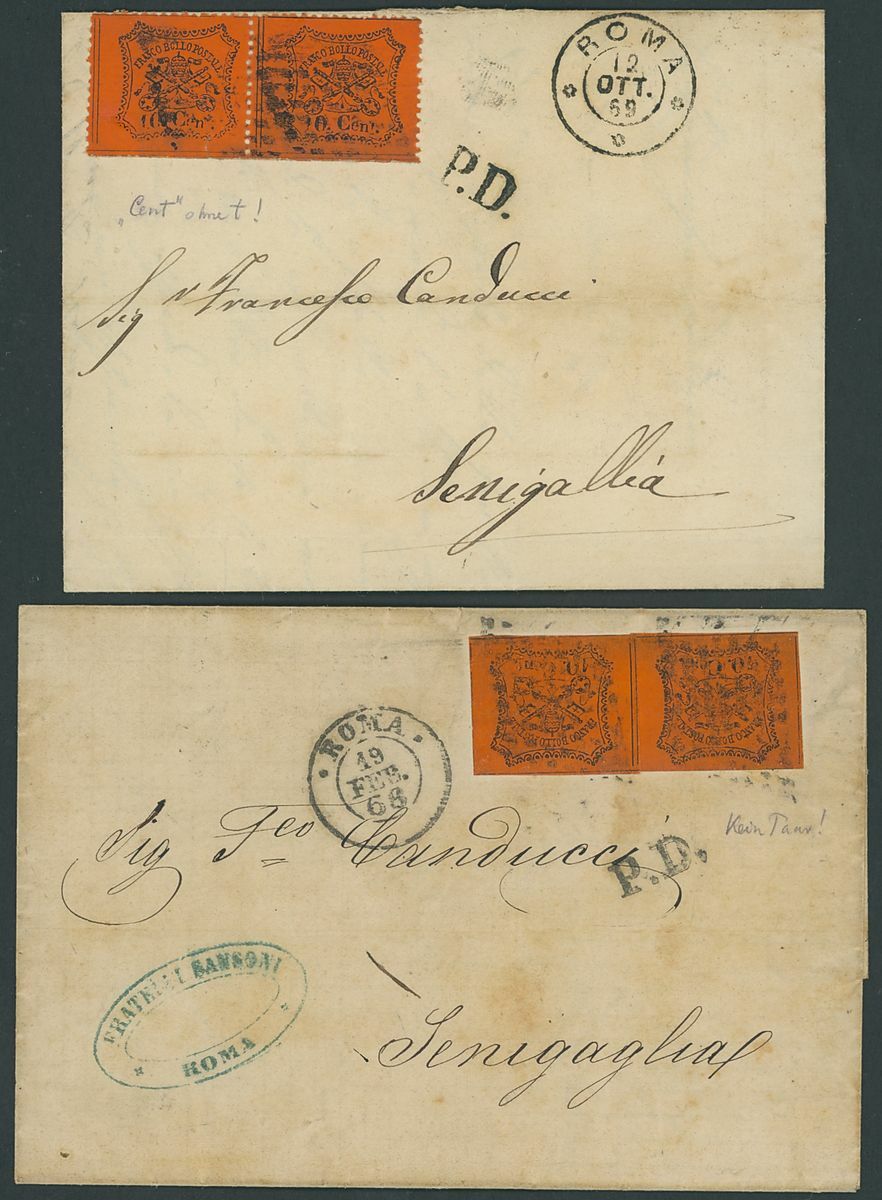 FRANCO BOLLO POSTALE FRANCO BOLLO POSTALE
10 Cen 10. Cent.
ROMA
12
OTT.
69
P.D.
„Cent" ohne t!
Sigr Francesco Canducci
Senigallia
10. Cent. 10. Cent.
FRANCO BOLLO POSTALE FRANCO BOLLO POSTALE
ROMA
19
FEB.
68
Kein Paar!
Sig Fco Canducci
P.D.
FRATELLI SANSONI
ROMA
Senigaglia